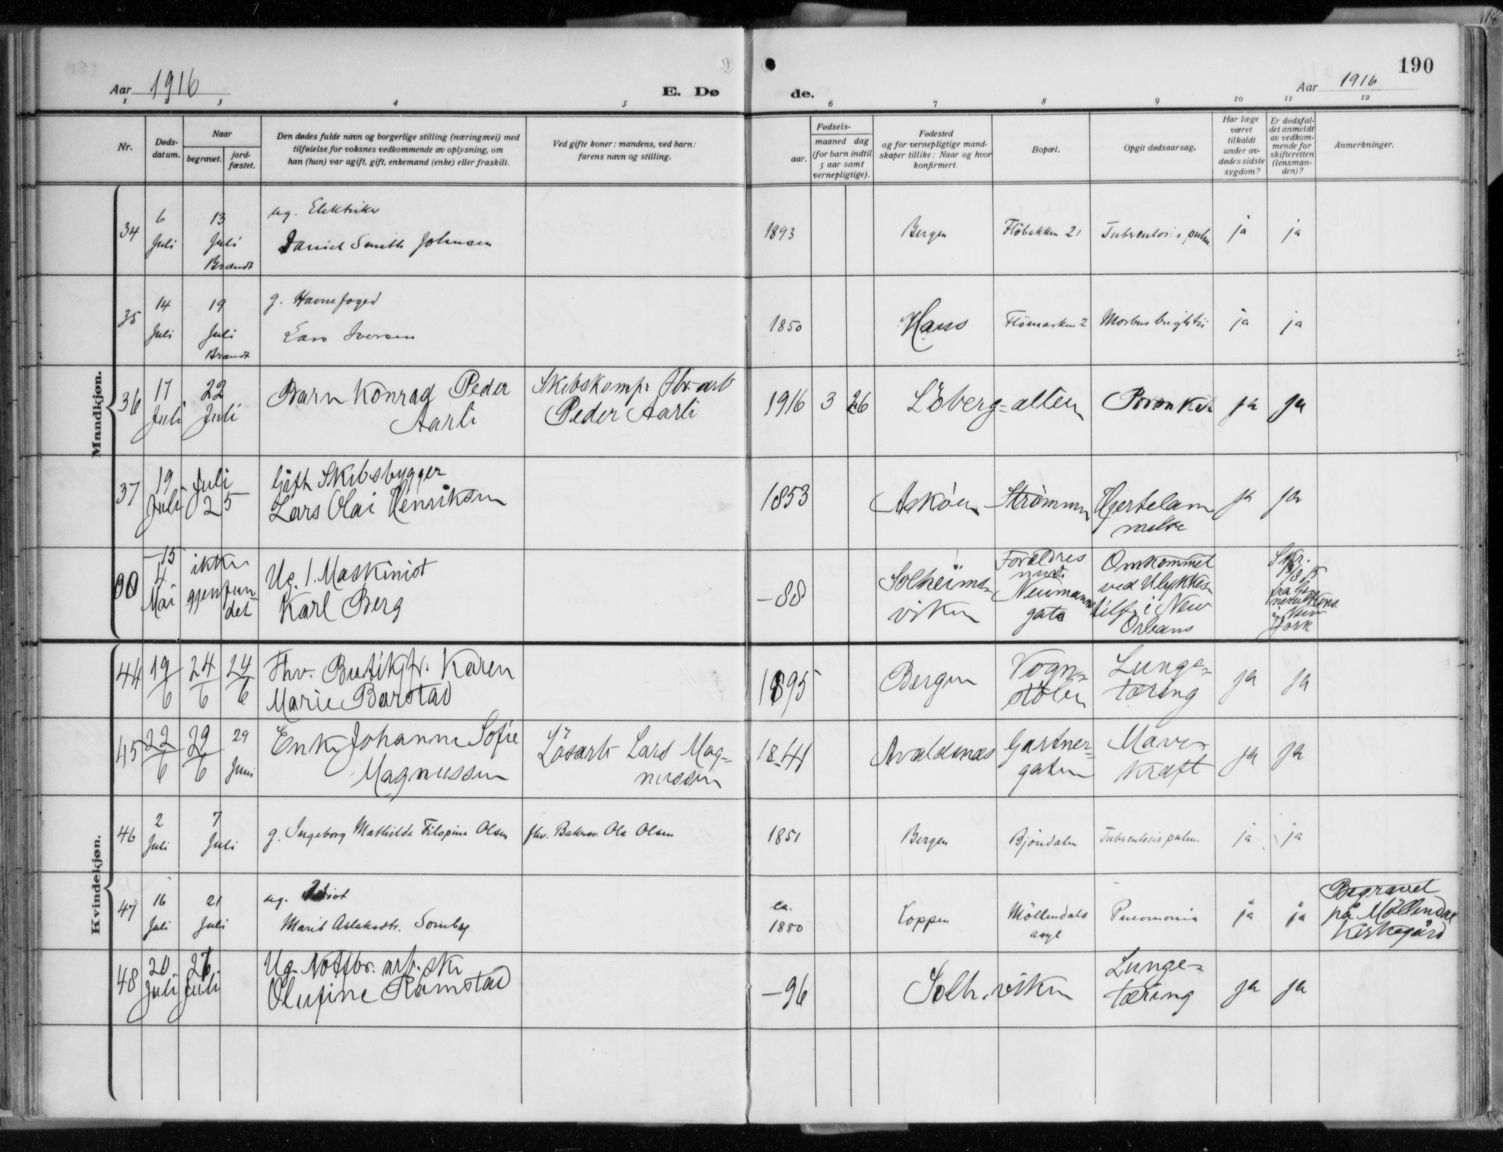 190
Aar 1916
E. Dø de.
Aar 1916
1 2 3 4 5 6 7 8 9 10 11 12
Nr.
Døds-
datum.
Naar
begravet.
jord-
fæstet.
Den dødes fulde navn og borgerlige stilling (næringsvei) med
tilføielse for voksnes vedkommende av oplysning, om
han (hun) var ugift, gift, enkemand (enke) eller fraskilt.
Ved gifte koner: mandens, ved barn:
farens navn og stilling.
Fødsels-
aar.
maaned dag
(for barn indtil
5 aar samt
vernepligtige).
Fødested
og for vernepligtige mand-
skaper tillike: Naar og hvor
konfirmert.
Bopæl.
Opgit dødsaarsag.
Har læge
været
tilkaldt
under av-
dødes sidste
sygdom?
Er dødsfal-
det anmeldt
av vedkom-
mende for
skifteretten
(lensman-
den)?
Anmerkninger.
Mandkjøn.
34
6
Juli
13
Juli
Brandt
ug. Elektriker
Daniel Smith Johnsen
1893
Bergen
Flöbakken 21
Tuberculosis pulm
ja
ja
35
14
Juli
19
Juli
Brandt
g. Havnefoged
Lars Iversen
1850
Haus
Flömarken 2
Morbus brightii
ja
ja
36
17
Juli
22
Juli
Barn Konrad Peder
Aarli
Skibskomp. fbr-arb
Peder Aarli
1916 3 26
Löberg-alleen
Bronkit
ja
ja
37
19
Juli
Juli
25
Gift Skibsbygger
Lars Olai Henriksen
1853
Askøen
Strömmen
Hjertelam
melse
ja
ja
38
-15
4
Mai
ikke
gjenfun-
det
Ug. 1. Maskinist
Karl Berg
-88
Solheims-
viken
Forældres
Neumanns
gate
Omkommet
ved Ulykkes-
tilf. i New
Orleans
Skr.
fra Ge-
neralkons.
New
York
Kvindekjøn.
44
19/6
24/6
24/6
Fhv. Butikfr. Karen
Marie Barstad
1895
Bergen
Vogn-
stölen
Lunge-
tæring
ja
ja
45
22/6
29/6
29
Juni
Enke Johanne Sofie
Magnussen
Lösarb Lars Mag-
nussen
1844
Avaldsnæs
Gartner-
gaten
Mave-
kræft
ja
ja
46
2
Juli
7
Juli
g. Ingeborg Mathilde Filopine Olsen
fhv. Baker Ole Olsen
1851
Bergen
Bjöndalen
Tuberculosis pulm.
ja
ja
47
16
Juli
21
Juli
ug.
Marit Aslaksdtr. Somby
ca.
1880
Loppen
Möllendals
asyl
Pneomonia
ja
ja
Begravet
på Möllendal
Kirkegård
48
20
Juli
26
Juli
Ug. Notfbr. arb.ske
Olufine Ramstad
-96
Solh.viken
Lunge-
tæring
ja
ja